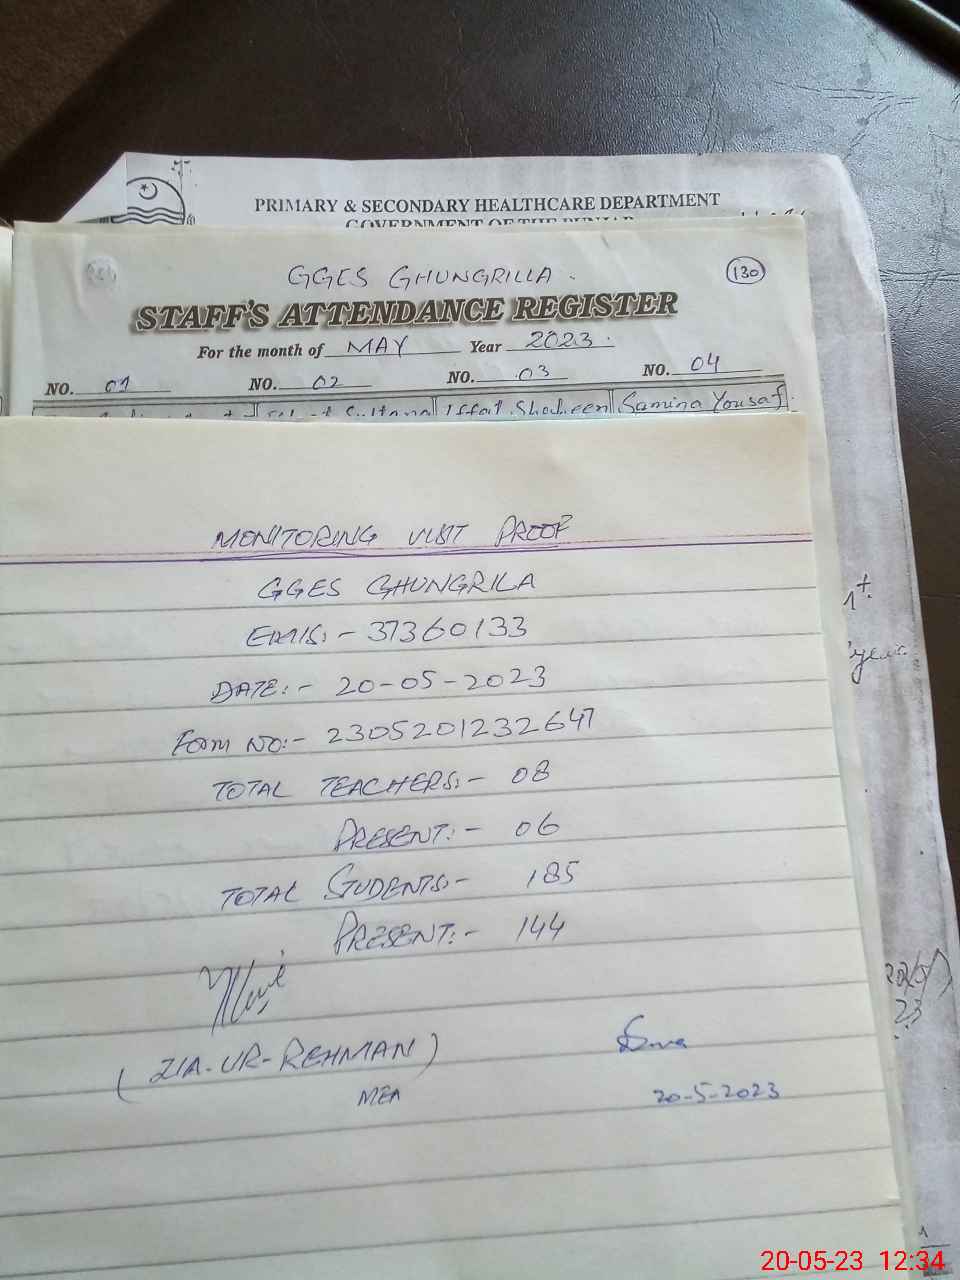 PRIMARY & SECONDARY HEALTHCARE DEPARTMENT
GOVERNMENT OF THE PUNJAB
GGES GHUNGRILLA.
130
STAFF'S ATTENDANCE REGISTER
For the month of MAY Year 2023.
NO. 01 NO. 02 NO. 03 NO. 04
Sultana Iffat Shaheen Samina Yousaf
MONITORING VISIT PROOF
GGES GHUNGRILA
EMIS:- 37360133
DATE:- 20-05-2023
Form NO:- 2305201232647
TOTAL TEACHERS:- 08
PRESENT:- 06
TOTAL STUDENTS:- 185
PRESENT:- 144
(ZIA-UR-REHMAN)
MEA
20-5-2023
20-05-23 12:34